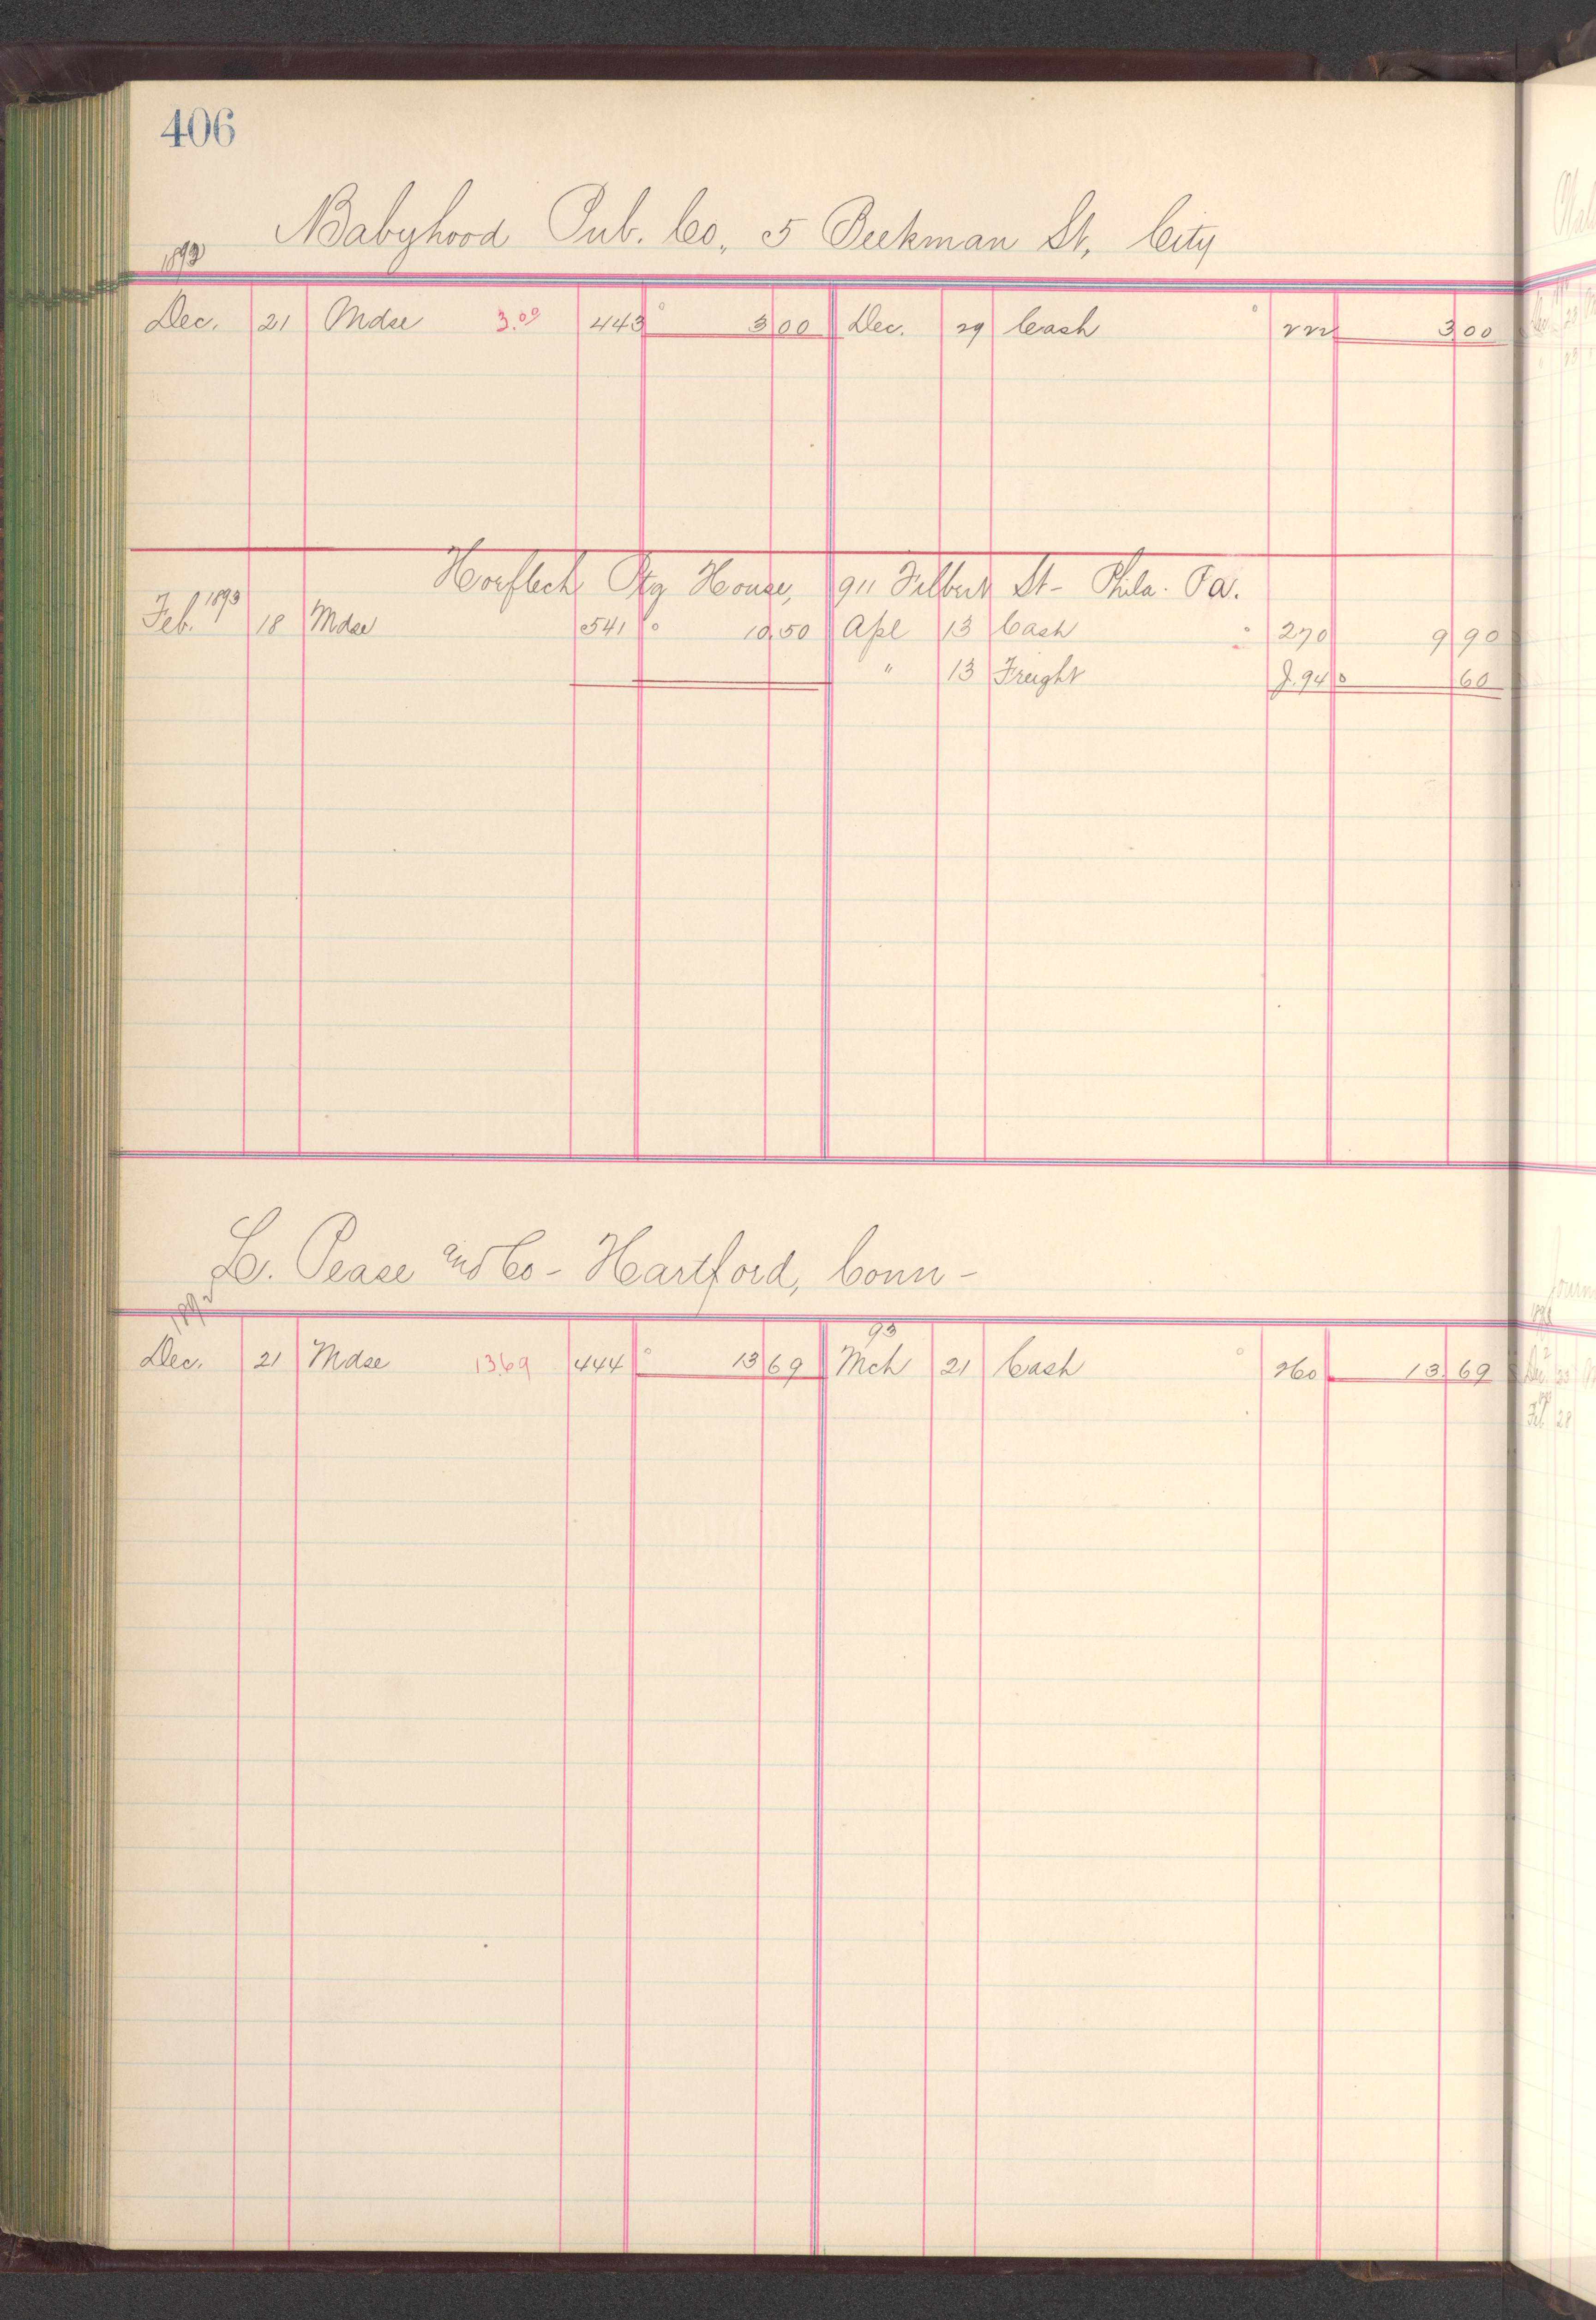 406
Babyhood Pub. Co., 5 Beekman St, City
1892
Dec. 21 Mdse 3.00 443 3 00 Dec. 29 Cash 222 3 00
Horflech Ptg House, 911 Filbert St- Phila. Pa.
Feb. 1893 18 Mdse 541 10.50 Apl 13 Cash 270 9 90
" 13 Freight J. 94 60
L. Pease and Co - Hartford, Conn -
1892
93
Dec. 21 Mdse 13.69 444 13 69 Mch 21 Cash 260 13 69